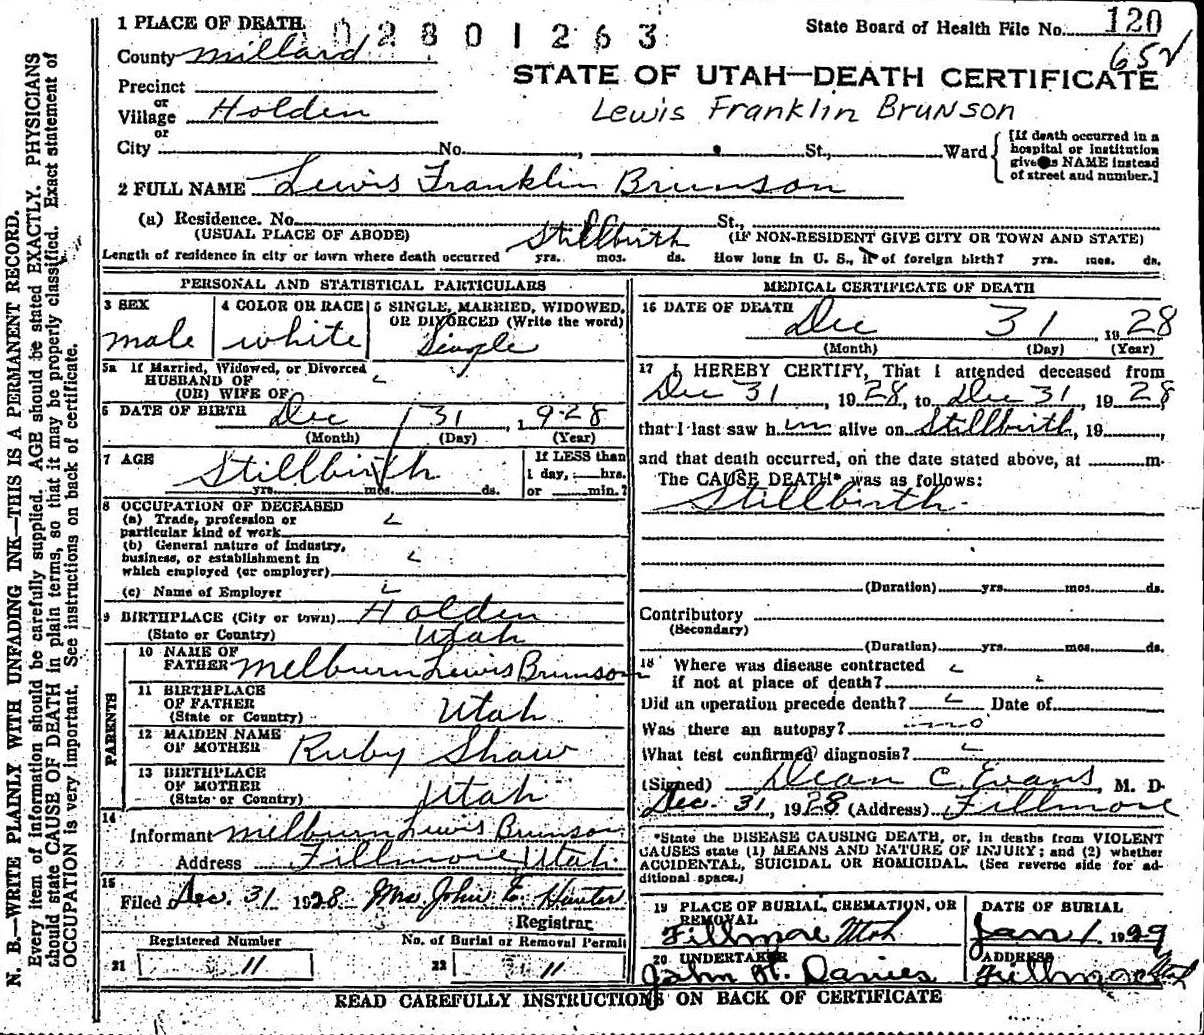 1 PLACE OF DEATH
02801263
State Board of Health File No. 120
County Millard
652
STATE OF UTAH—DEATH CERTIFICATE
Precinct
or
Village Holden
Lewis Franklin Brunson
or
City No. St., Ward
[If death occurred in a
hospital or institution
give its NAME instead
of street and number.]
2 FULL NAME Lewis Franklin Brunson
(a) Residence. No. St.,
(USUAL PLACE OF ABODE) Stillbirth (IF NON-RESIDENT GIVE CITY OR TOWN AND STATE)
Length of residence in city or town where death occurred yrs. mos. ds. How long in U. S., if of foreign birth? yrs. mos. ds.
PERSONAL AND STATISTICAL PARTICULARS
3 SEX
male
4 COLOR OR RACE
white
5 SINGLE, MARRIED, WIDOWED,
OR DIVORCED (Write the word)
Single
5a If Married, Widowed, or Divorced
HUSBAND OF
(OR) WIFE OF
6 DATE OF BIRTH Dec 31, 1928
(Month) (Day) (Year)
7 AGE
Stillbirth
yrs. mos. ds.
If LESS than
1 day, hrs.
or min.?
8 OCCUPATION OF DECEASED
(a) Trade, profession or
particular kind of work
(b) General nature of Industry,
business, or establishment in
which employed (or employer)
(c) Name of Employer
9 BIRTHPLACE (City or town) Holden
(State or Country) Utah
PARENTS
10 NAME OF
FATHER Melburn Lewis Brunson
11 BIRTHPLACE
OF FATHER
(State or Country) Utah
12 MAIDEN NAME
OF MOTHER Ruby Shaw
13 BIRTHPLACE
OF MOTHER
(State or Country) Utah
14
Informant Melburn Lewis Brunson
Address Fillmore Utah
15
Filed Dec. 31 1928 Mrs John E. Hunter
Registrar
Registered Number
21 11
No. of Burial or Removal Permit
22 11
MEDICAL CERTIFICATE OF DEATH
16 DATE OF DEATH Dec 31 1928
(Month) (Day) (Year)
17 I HEREBY CERTIFY, That I attended deceased from
Dec 31, 1928, to Dec 31, 1928
that I last saw him alive on Stillbirth, 19
and that death occurred, on the date stated above, at m.
The CAUSE DEATH* was as follows:
Stillbirth
(Duration) yrs. mos. ds.
Contributory
(Secondary)
(Duration) yrs. mos. ds.
18 Where was disease contracted
if not at place of death?
Did an operation precede death? Date of
Was there an autopsy? no
What test confirmed diagnosis?
(Signed) Dean C. Evans, M. D.
Dec. 31, 1928 (Address) Fillmore
*State the DISEASE CAUSING DEATH, or, in deaths from VIOLENT
CAUSES state (1) MEANS AND NATURE OF INJURY; and (2) whether
ACCIDENTAL, SUICIDAL OR HOMICIDAL. (See reverse side for ad-
ditional space.)
19 PLACE OF BURIAL, CREMATION, OR
REMOVAL
Fillmore Utah
DATE OF BURIAL
Jan 1 1929
20 UNDERTAKER
John H. Davies
ADDRESS
Fillmore Utah
READ CAREFULLY INSTRUCTIONS ON BACK OF CERTIFICATE
N. B.—WRITE PLAINLY WITH UNFADING INK—THIS IS A PERMANENT RECORD.
Every item of information should be carefully supplied. AGE should be stated EXACTLY. PHYSICIANS
should state CAUSE OF DEATH in plain terms, so that it may be properly classified. Exact statement of
OCCUPATION is very important. See instructions on back of certificate.